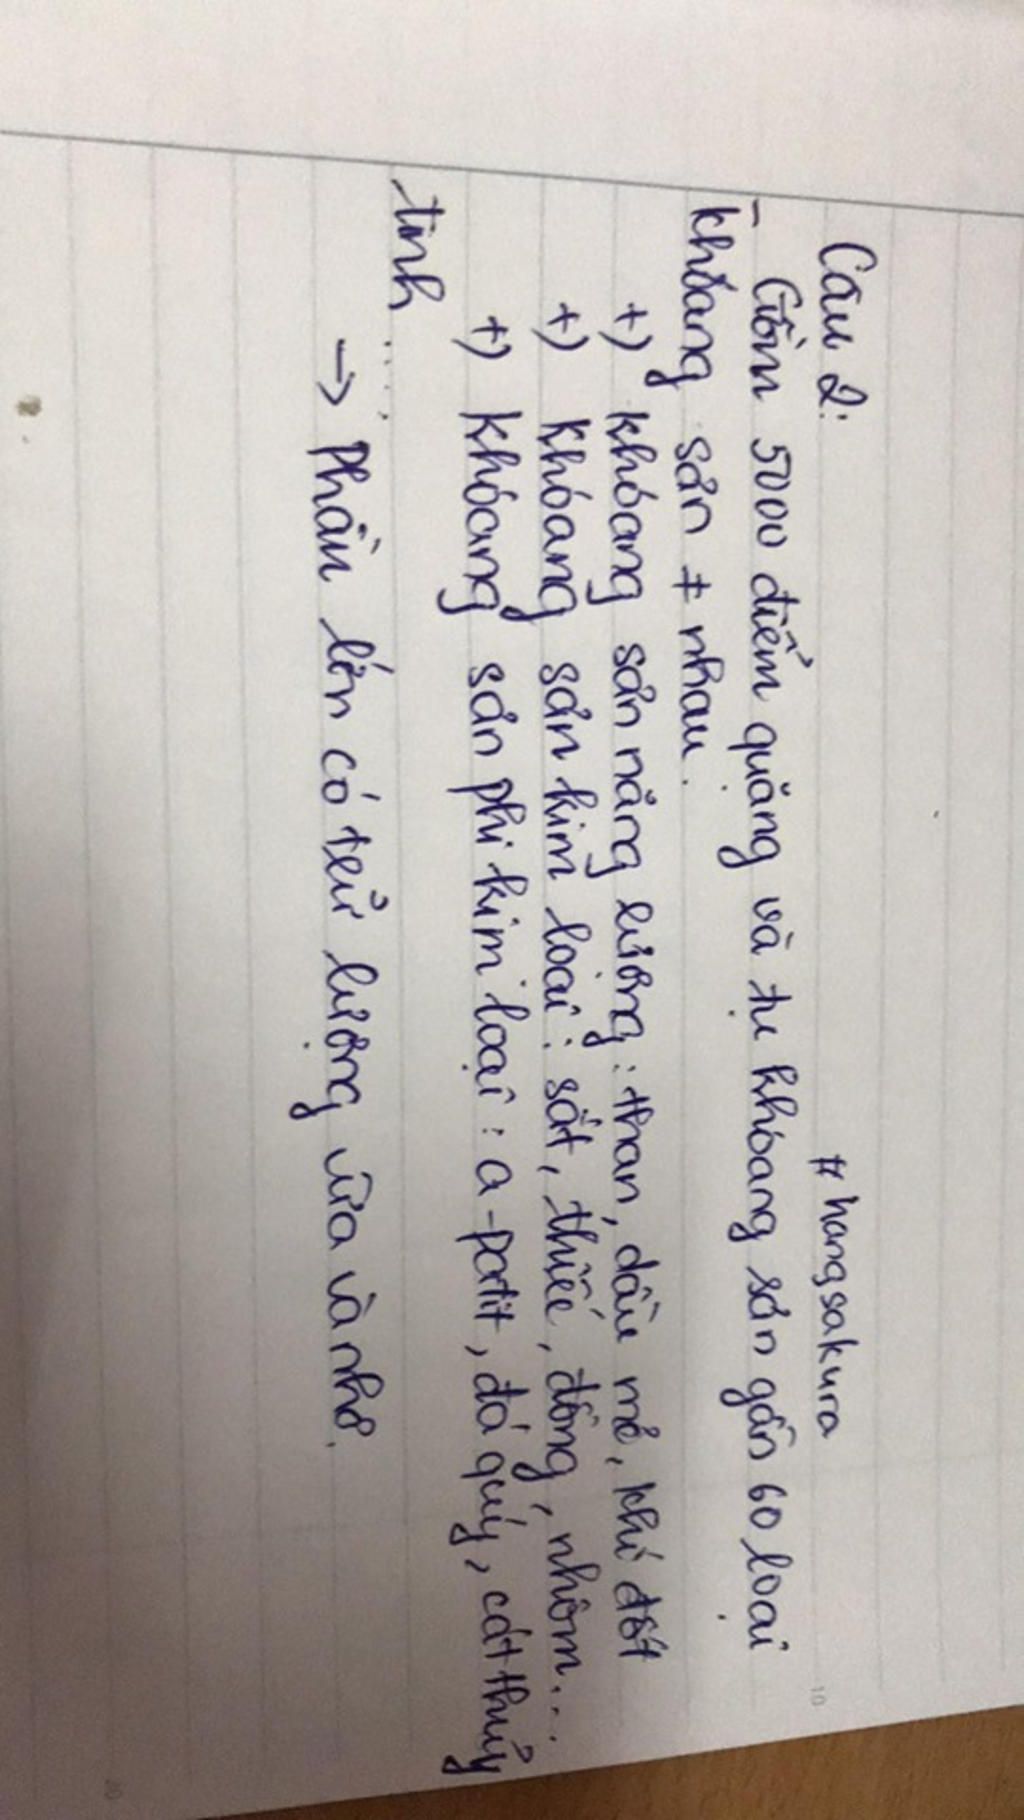 Câu 2: #hangsakura
- Gồm 5000 điểm quặng và tụ khoáng sản gần 60 loại
khoáng sản ≠ nhau.
+) khoáng sản năng lượng: than, dầu mỏ, khí đốt
+) khoáng sản kim loại: sắt, thiếc, đồng, nhôm...
+) khoáng sản phi kim loại: a-patit, đá quý, cát thủy
tinh ....
→ Phần lớn có trữ lượng vừa và nhỏ.
10
20